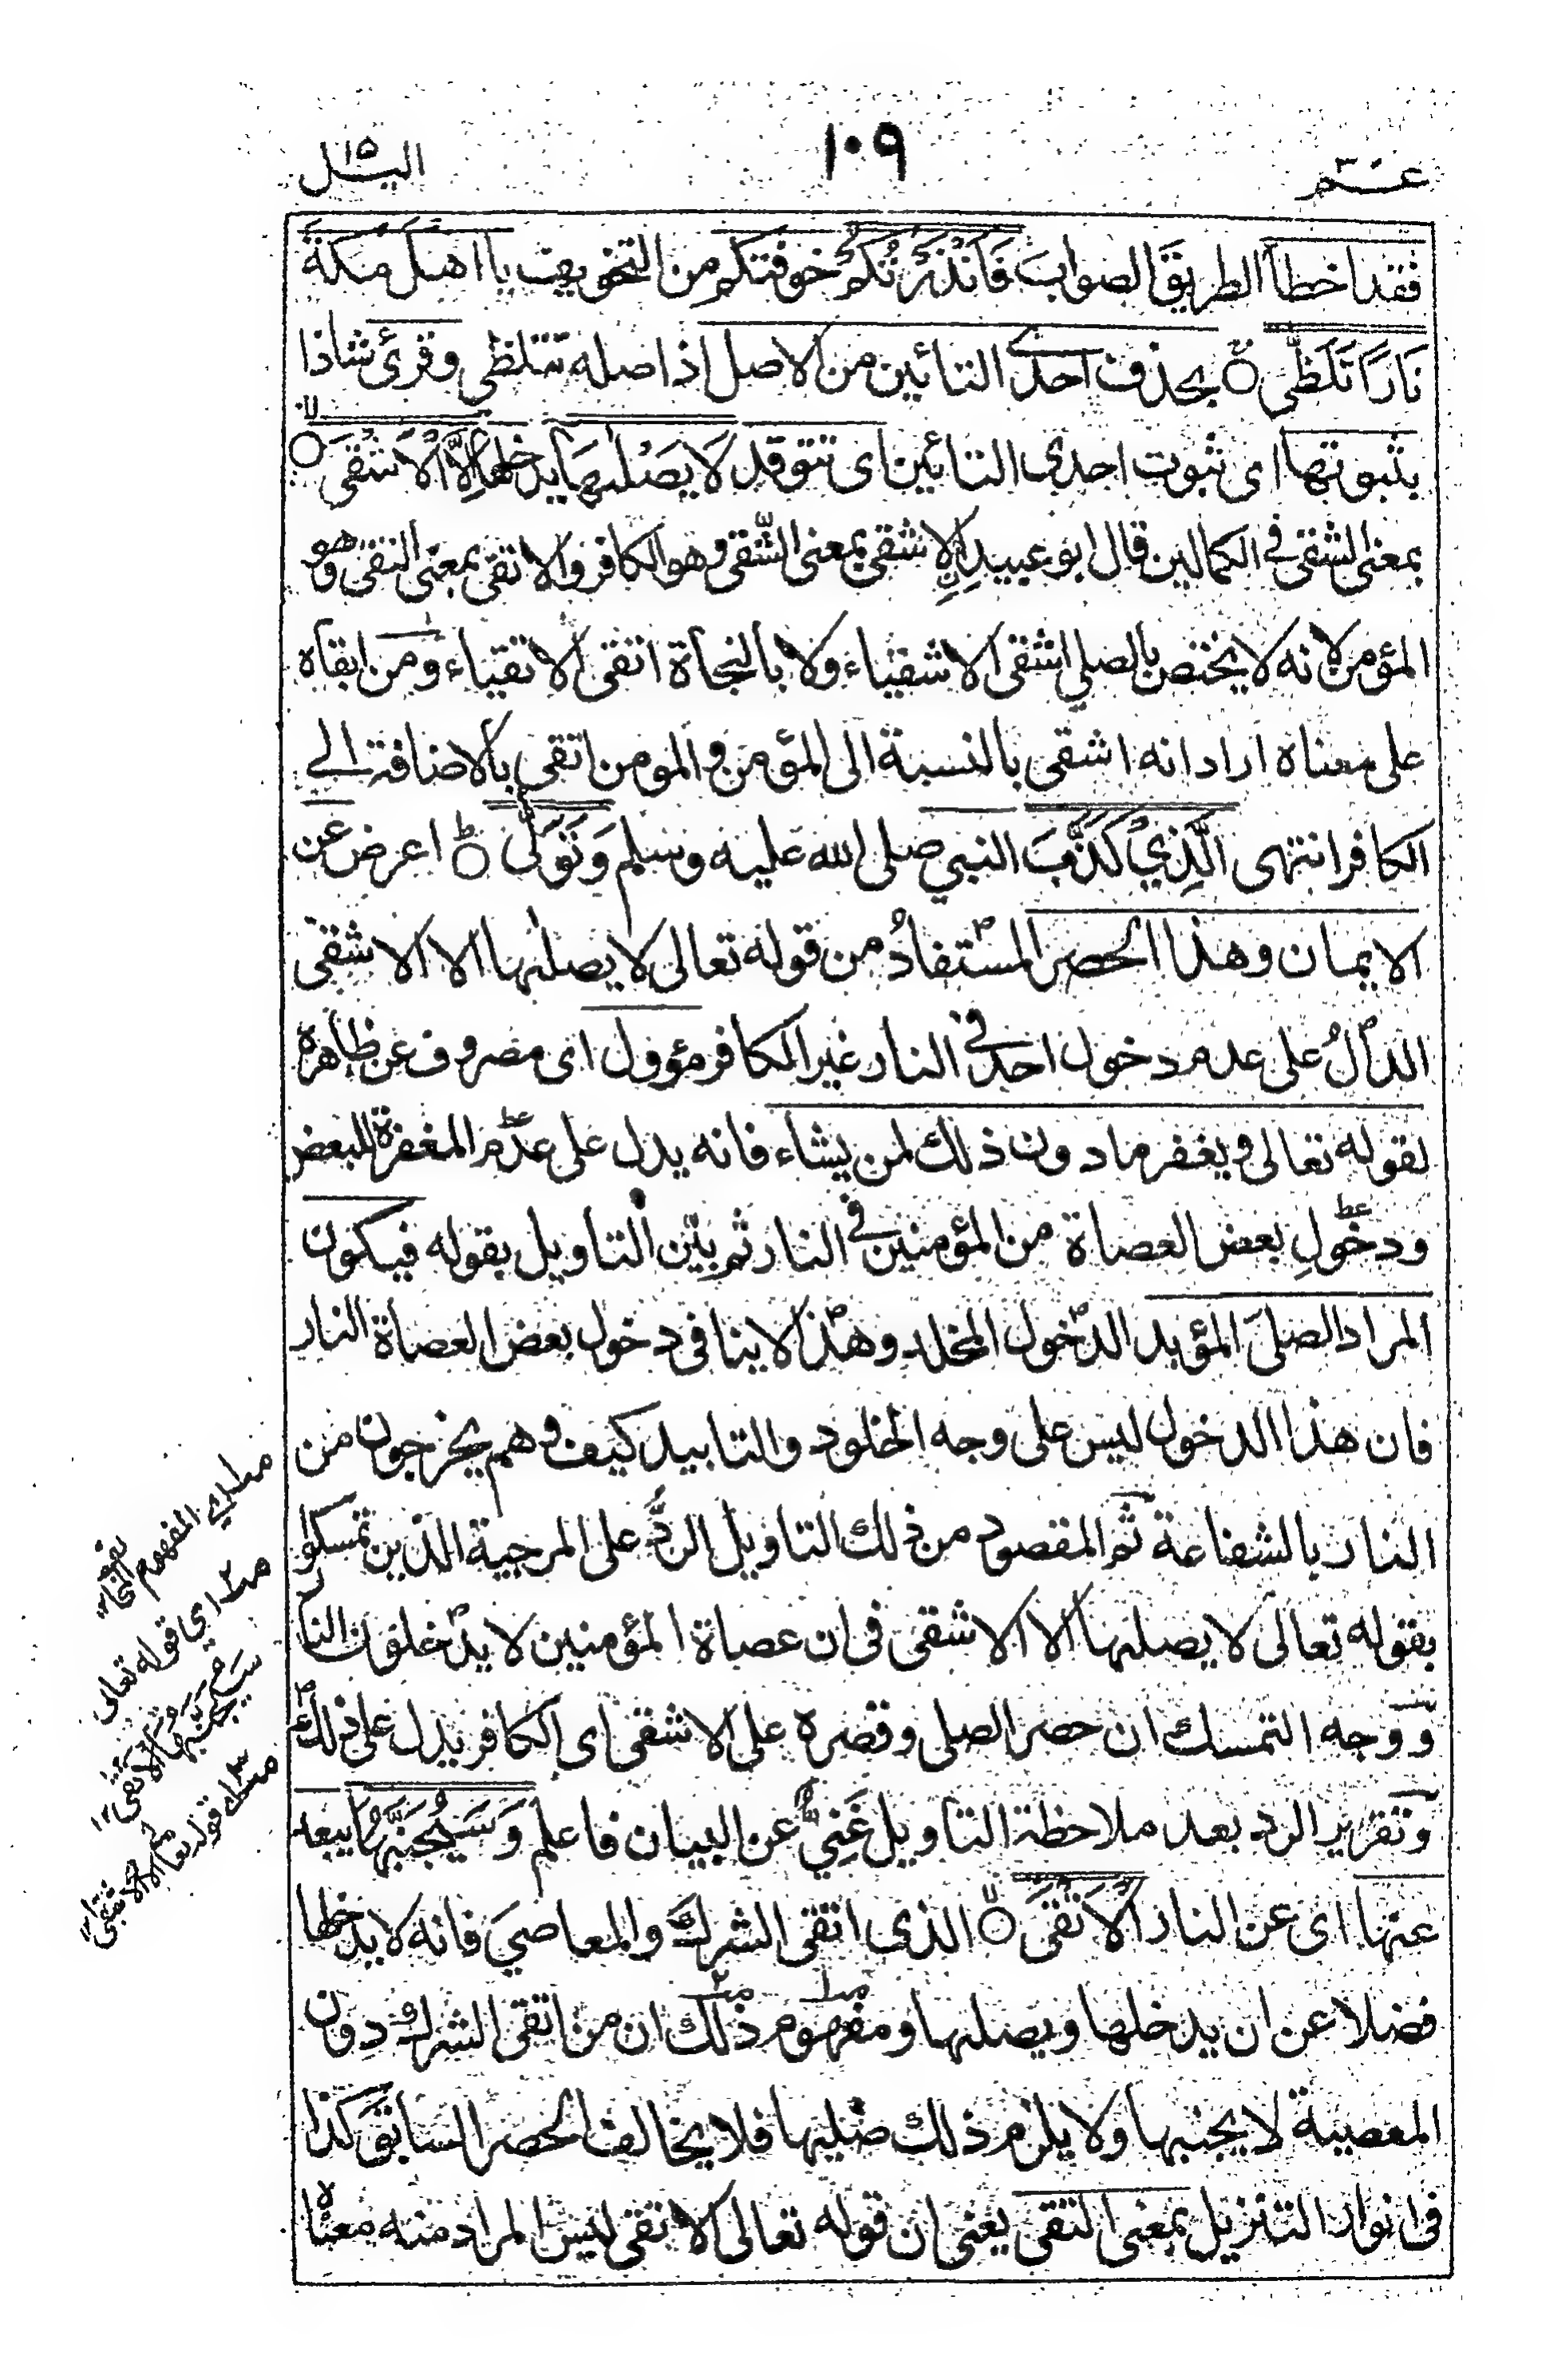 عـــم ٣٠
١٠٩
اليـــل ١٥
فقد اخطأ الطريق الصواب فَاَنْذَرْتُكُمْ خوفتكم من التخويف يا اهل مكة
نَارًا تَلَظّٰى ۝ بحذف احدى التائين من الاصل اذ اصله تتلظى وقرئ شاذا
بثبوتها اى ثبوت احدى التائين اى تتوقد لَا يَصْلٰىهَا يدخلها اِلَّا الْاَشْقَى ۝
بمعنى الشقى فى الكمالين قال ابو عبيد الاشقى بمعنى الشقى وهو الكافر والاتقى بمعنى التقى وهو
المؤمن لانه لا يختص بالصلى اشقى الاشقياء ولا بالنجاة اتقى الاتقياء ومن ابقاه
على معناه اراد انه اشقى بالنسبة الى المؤمن والمومن اتقى بالاضافة الى
الكافر انتهى الَّذِيْ كَذَّبَ النبي صلى الله عليه وسلم وَتَوَلّٰى ۝ اعرض عن
الايمان وهذا الحصر المستفادُ من قوله تعالى لا يصلٰىها الا الاشقى
الدالُ على عدم دخول احد فى النار غير الكافر مؤول اى مصروف عن ظاهره
بقوله تعالى ويغفر ما دون ذلك لمن يشاء فانه يدل على عدم المغفرة للبعض
ودخولِ بعض العصاة من المؤمنين فى النار ثم بيّن التاويل بقوله فيكون
المراد الصلىَ المؤبد الدخول المخلد وهذا لا ينافى دخول بعض العصاة النار
فان هذا الدخول ليس على وجه الخلود والتابيد كيف وهم يخرجون من
النار بالشفاعة ثم المقصود من ذلك التاويل الردُّ على المرجية الذين تمسكوا
بقوله تعالى لا يصلٰىها الا الاشقى فى ان عصاة المؤمنين لا يدخلون النار
ووجه التمسك ان حصر الصلى وقصره على الاشقى اى الكافر يدل على ذلك
وتقرير الرد بعد ملاحظة التاويل غَنِيٌّ عن البيان فاعلم وَسَيُجَنَّبُهَا يبعد
عنها اى عن النار الْاَتْقَى ۝ الذى اتقى الشرك والمعاصي فانه لا يدخلها
فضلا عن ان يدخلها ويصلٰىها ومفهوم ذلك ان من اتقى الشرك دون
المعصية لا يجنبها ولا يلزم ذلك صليها فلا يخالف الحصر السابق كذا
فى انوار التنزيل بمعنى التقى يعنى ان قوله تعالى الاتقى ليس المراد منه معناه
صـ١ اي المفهوم
صـ٢ اي قوله تعالى
سَيُجَنَّبُهَا الْاَتْقَى ١٢
صـ٣ اي قوله تعا الا الاشقى ١٢